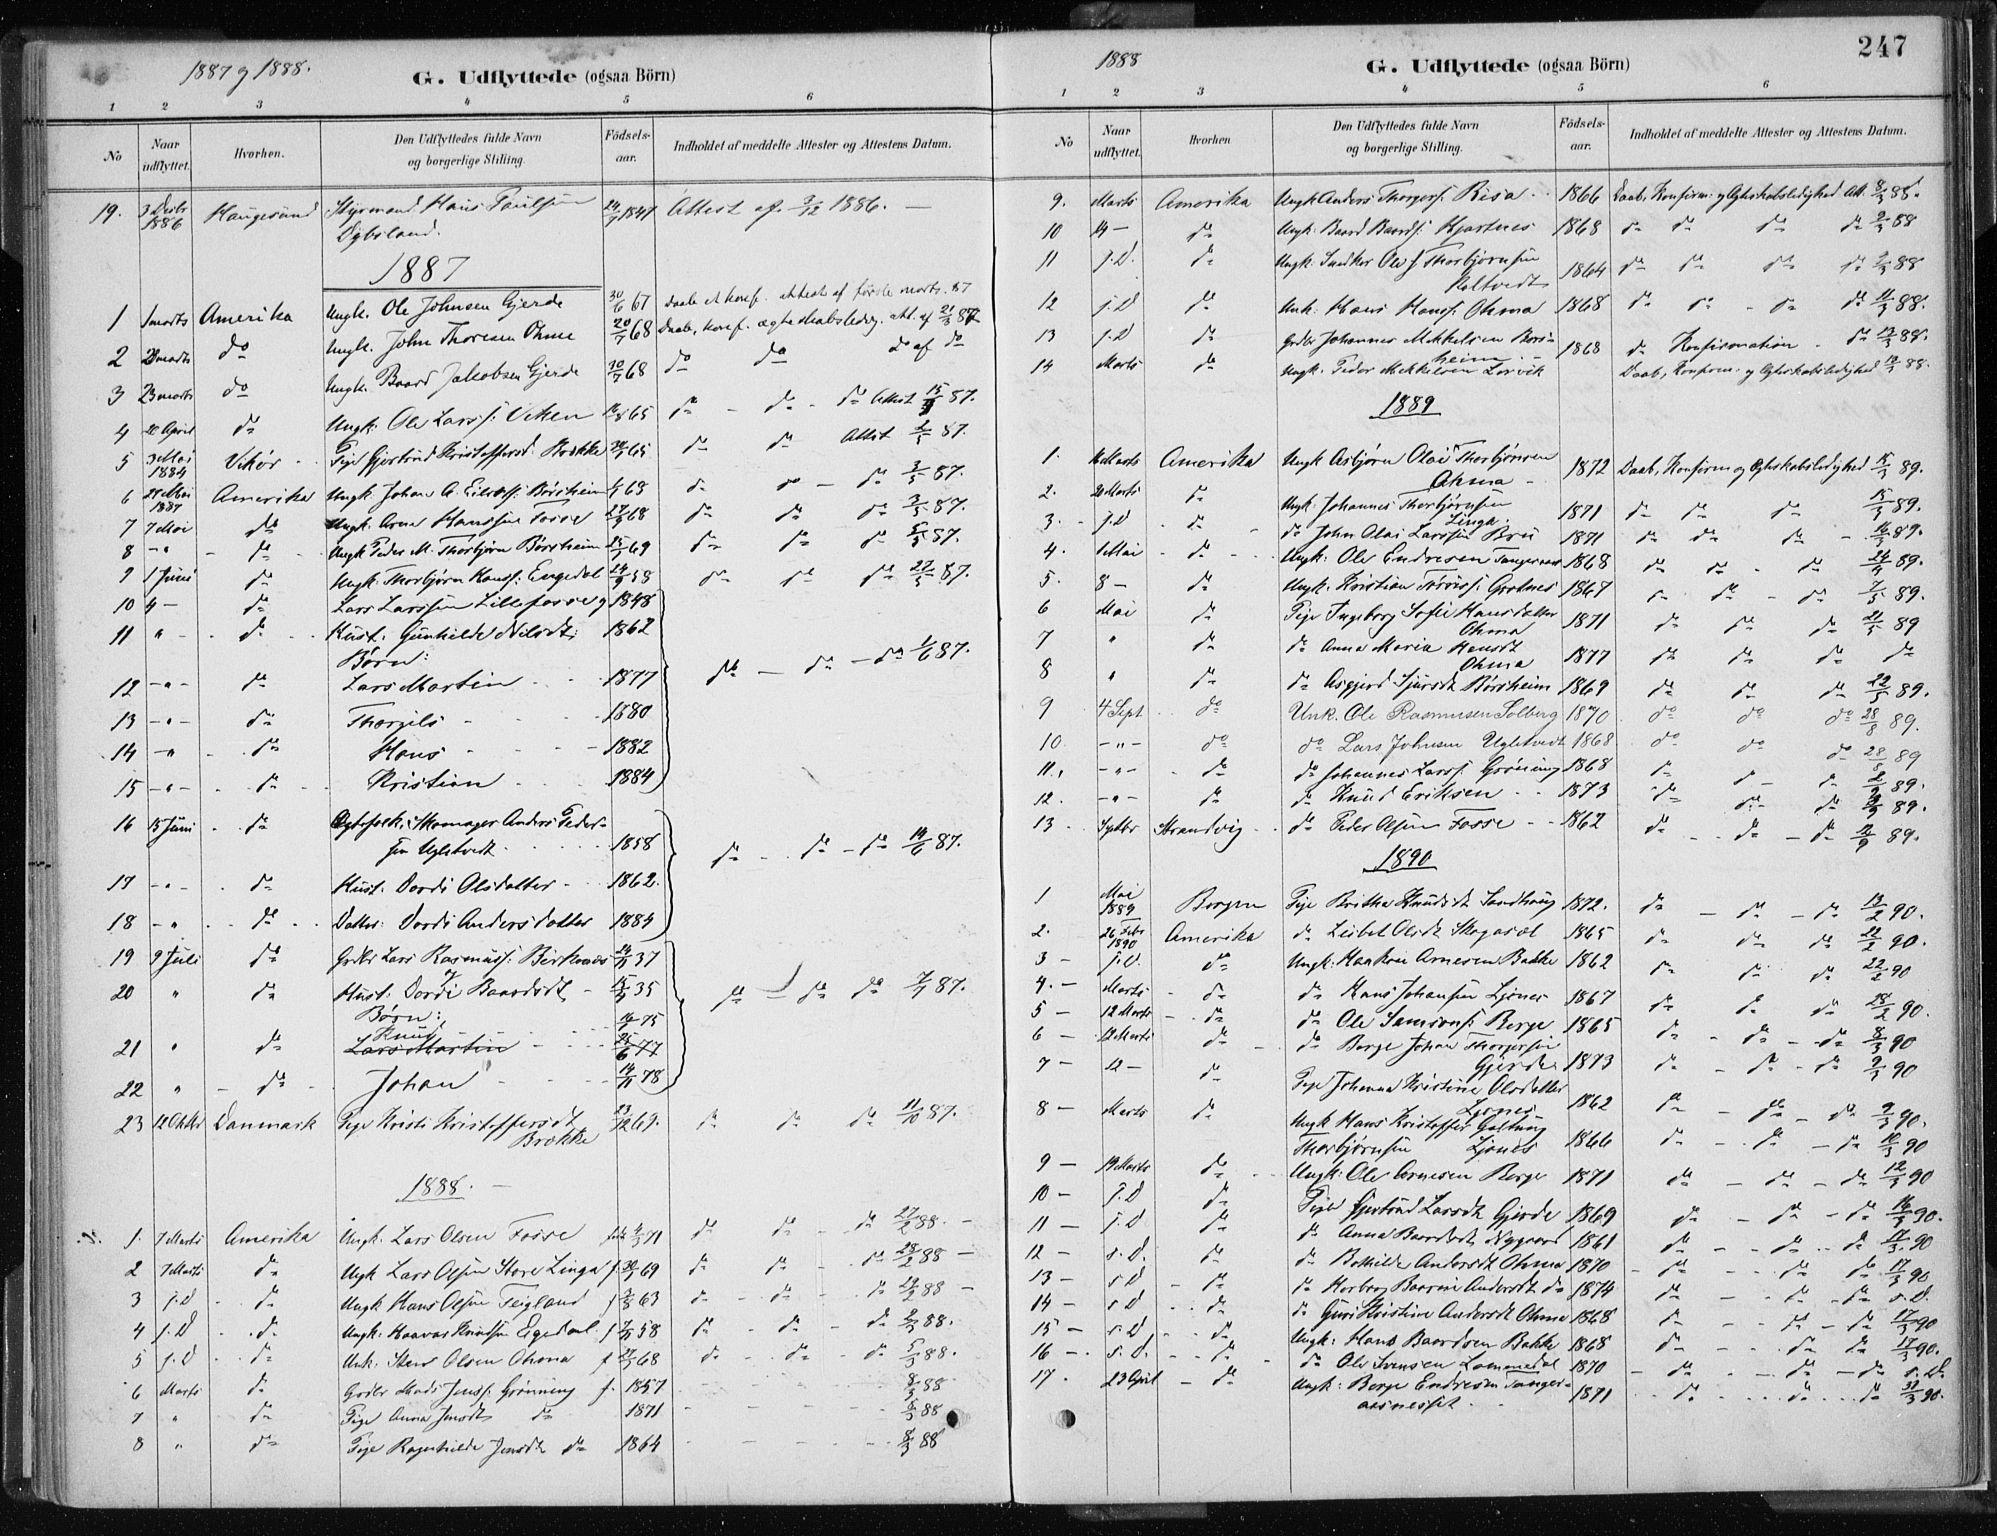 1887 & 1888.
G. Udflyttede (ogsaa Börn)
1 2 3 4 5 6
No Naar udflyttet. Hvorhen. Den Udflyttedes fulde Navn og borgerlige Stilling. Födsels-aar. Indholdet af meddelte Attester og Attestens Datum.
19. 3 Decbr 1886 Haugesund Styrmand Hans Paulsen 1847 Attest af 3/12 1886. —
Dybsland.
1887
1 1 marts Amerika Ungk. Ole Johnsen Gjerde 30/6 67 Daab & konf. attest af første marts 87
2 do Ungk. John Thoresen Ohme 20/7 68 Daab, konf. ægteskabsledig. att. af 21/3 87
3 23 marts do Ungk. Baard Jakobsen Gjerde 30/7 68 do do do af do
4 20 April do Ungk: Ole Larss: Viken 65 do - do - do Attest 87.
5 3 Mai 1884 Vikør Pige Gjertrud Kristoffersd. Brække 65 do do Attest 2/5 87.
6 1887 Amerika Ungk. Johan A. Børsheim 68 do do — do 3/5 87.
7 7 Mai do Ungk. Arne Hanssen Fosse 68 do do do 3/5 87.
8 -"- do Ungk Peder M. Thorbjørn Børsheim 69 do do do 5/5 87.
9 1 Juni do Ungk. Thorbjørn Hanss: Engedal 58 do do do 27/5 87.
10 4 — do Lars Larssen Lillefosse & 1848
11 " - do Hust. Gunhilde Nilsdt: 1862
Børn:
do — do — do 1/6 87.
12 -"- do Lars Martin 1877
13 -"- do Thorgils 1880
14 -"- do Hans 1882
15 -"- do Kristian 1884
16 15 Juni do Ægtefolk, Skomager Anders Peder-
sen Ugletvedt 1858 do - do - do 14/6 87.
17 -"- do Hust. Dordi Olsdatter 1862.
18 -"- do Datter: Dordi Andersdatter 1884
19 9 Juli do Grdbr Lars Rasmuss: Berhus 37
20 " do Hust: Dordi Baardsdt 35 do — do do 7/7 87.
Børn:
Knud 75
21 " do Lars Martin 77
22 " do Johan 78
23 12 Oktbr Danmark Pige Kristi Kristoffersdt 69. do do do 11/10 87.
Brække
1888.
1. 7 Marts Amerika Ungk. Lars Olsen Fosse 71 do do do 27/2 88. -
2 7 Marts do Ungk Lars Olsen Store Linga f. 69 do do - do 28/2 88 —
3 s.D. do Ungk Hans Olsen Teigland f 63 do - do - do 29/2 88 -
4 s.D. do Ungk. Haavar Knutsen Egedal f. 58 do - do - do 2/3 88.
5 s.D. do Unk. Stens Olsen Ohma f 68 do - do - do 5/3 88.
6 Marts do Grdbr Mads Jenss: Grønning f. 1857 8/3 88
7 " do Pige Anna Jensdt do 1871 8/3 88
8 " do Pige Ragnhilde Jensdt do 1864 8/3 88
1888
G. Udflyttede (ogsaa Börn) 247
1 2 3 4 5 6
No Naar udflyttet. Hvorhen Den Udflyttedes fulde Navn og borgerlige Stilling. Födsels-aar. Indholdet af meddelte Attester og Attestens Datum.
9. Marts Amerika Ungk Anders Thorgerss. Risa 1866 Daab, Konfirm. & Ægteskabsledighed Att. 8/3 88.
10 14 - do Ungk. Baard Baards: Hjartnes 1868 do do do do 9/3 88
11 s.D. do Ungk. Ole Thorbjørnsen
Roltvedt 1864 do do do do 9/3 88
12 s.D do Unk. Hans Hanss: Ohma 1868 do do - do do 88.
13 s.D do Grdbr Johannes Mikkelsen Børs-
heim 1868 do Konfirmation - do 13/3 88.
14 Marts do Ungk. Peder Mikkelsen Lorvik Daab, Konfirm. & Ægteskabsledighed 88.
1889
1. Marts Amerika Ungk Asbjørn Olai Thorbjørnsen
Ohma 1872 Daab, Konfirm & Ægteskabsledighed 15/3 89.
2. 20 Marts do Ungk. Johannes Thorbjørnsen
Linga 1871 do do do 15/3 89.
3. s.D do do John Olai Larssen Bru 1871 do do do - 16/3 89.
4. 1 Mai do Ungk. Ole Endresen Tangeraas 1868 do do - do 24/4 89.
5. 8 - do Ungk. Kristian Grotnes 1867 do do - do 7/5 89.
6 Mai do Pige Ingeborg Sofie Hansdatter
Ohma 1871 do do do 21/5 89
7 " do do Anna Maria Hansdt
Ohma 1877 do do do do
8 " do do Asgjerd Sjursdt Børsheim 1869 do do do 22/5 89.
9 4 Sept. do Unk. Ole Rasmussen Solberg 1870 do do do 28/8 89.
10. -"- do do Lars Johnsen Ugletvedt 1868. do do do 28/8 89
11., -"- do do Johannes Larss: Grøning 1868 do do do 2/9 89.
12. -"- do do Knud Eriksen 1873 do do do 89.
13. Septbr Strandvig do Peder Olsen Fosse 1862 do - do - do 89.
1890
1 Mai 1889 Bergen Pige Britha Knudsdt Sandhaug 1872. do - do - do 13/2 90.
2. 26 Febr 1890 Amerika do Leibet Olsdt Skogasel 1865 do do do 22/2 90.
3 - s.D. do Ungk: Haakon Arnesen Bakke 1862 do do do 22/2 90
4. - Marts do do Hans Johansen Ljones 1867 do do do 28/2 90.
5 - 12 Marts do do Ole Samsons: Berge 1865 do - do - do 8/3 90
6 - 12 Marts do do Berge Johan Thorgersen
Gjerde 1873 do - do - do 9/3 90
7 - 12 - do Pige Johanna Kristine Olsdatter
Ljones 1862 do - do - do 9/3 90.
8 - Marts do Ungk Hans Kristoffer Galtung
Thorbjørnsen Ljones 1866 do - do - do 10/3 90
9 - 19 Marts do Ungk: Ole Arnesen Berge 1871 do - do - do 12/3 90
10 - s.D do Pige Gjertrud Larsdt Gjerde 1869 do - do - do 16/3 90.
11 - s.D do do Anna Baardsdt Nygaard 1861 do - do - do 17/3 90
12 - s.D. do do Bothilde Andersdt Ohma 1870 - do - do do 17/3 90
13 - s.D - do do Herborg Baarine Andersdt do 1874 do - do - do s.D.
14 - s.D do do Guri Kristine Andersdt Ohma 1868 do - do - do 17/3 90
15 - s.D do Ungk: Hans Baardsen Bakke 1868 do - do do 17/3 90.
16 - s.D. do do Ole Svensen Lammedal 1870 - do - do - do s.D.
17. 23 April - do Ungk: Berge Endresen Tanger-
aasnesset 1871 do do do 31/3 90.